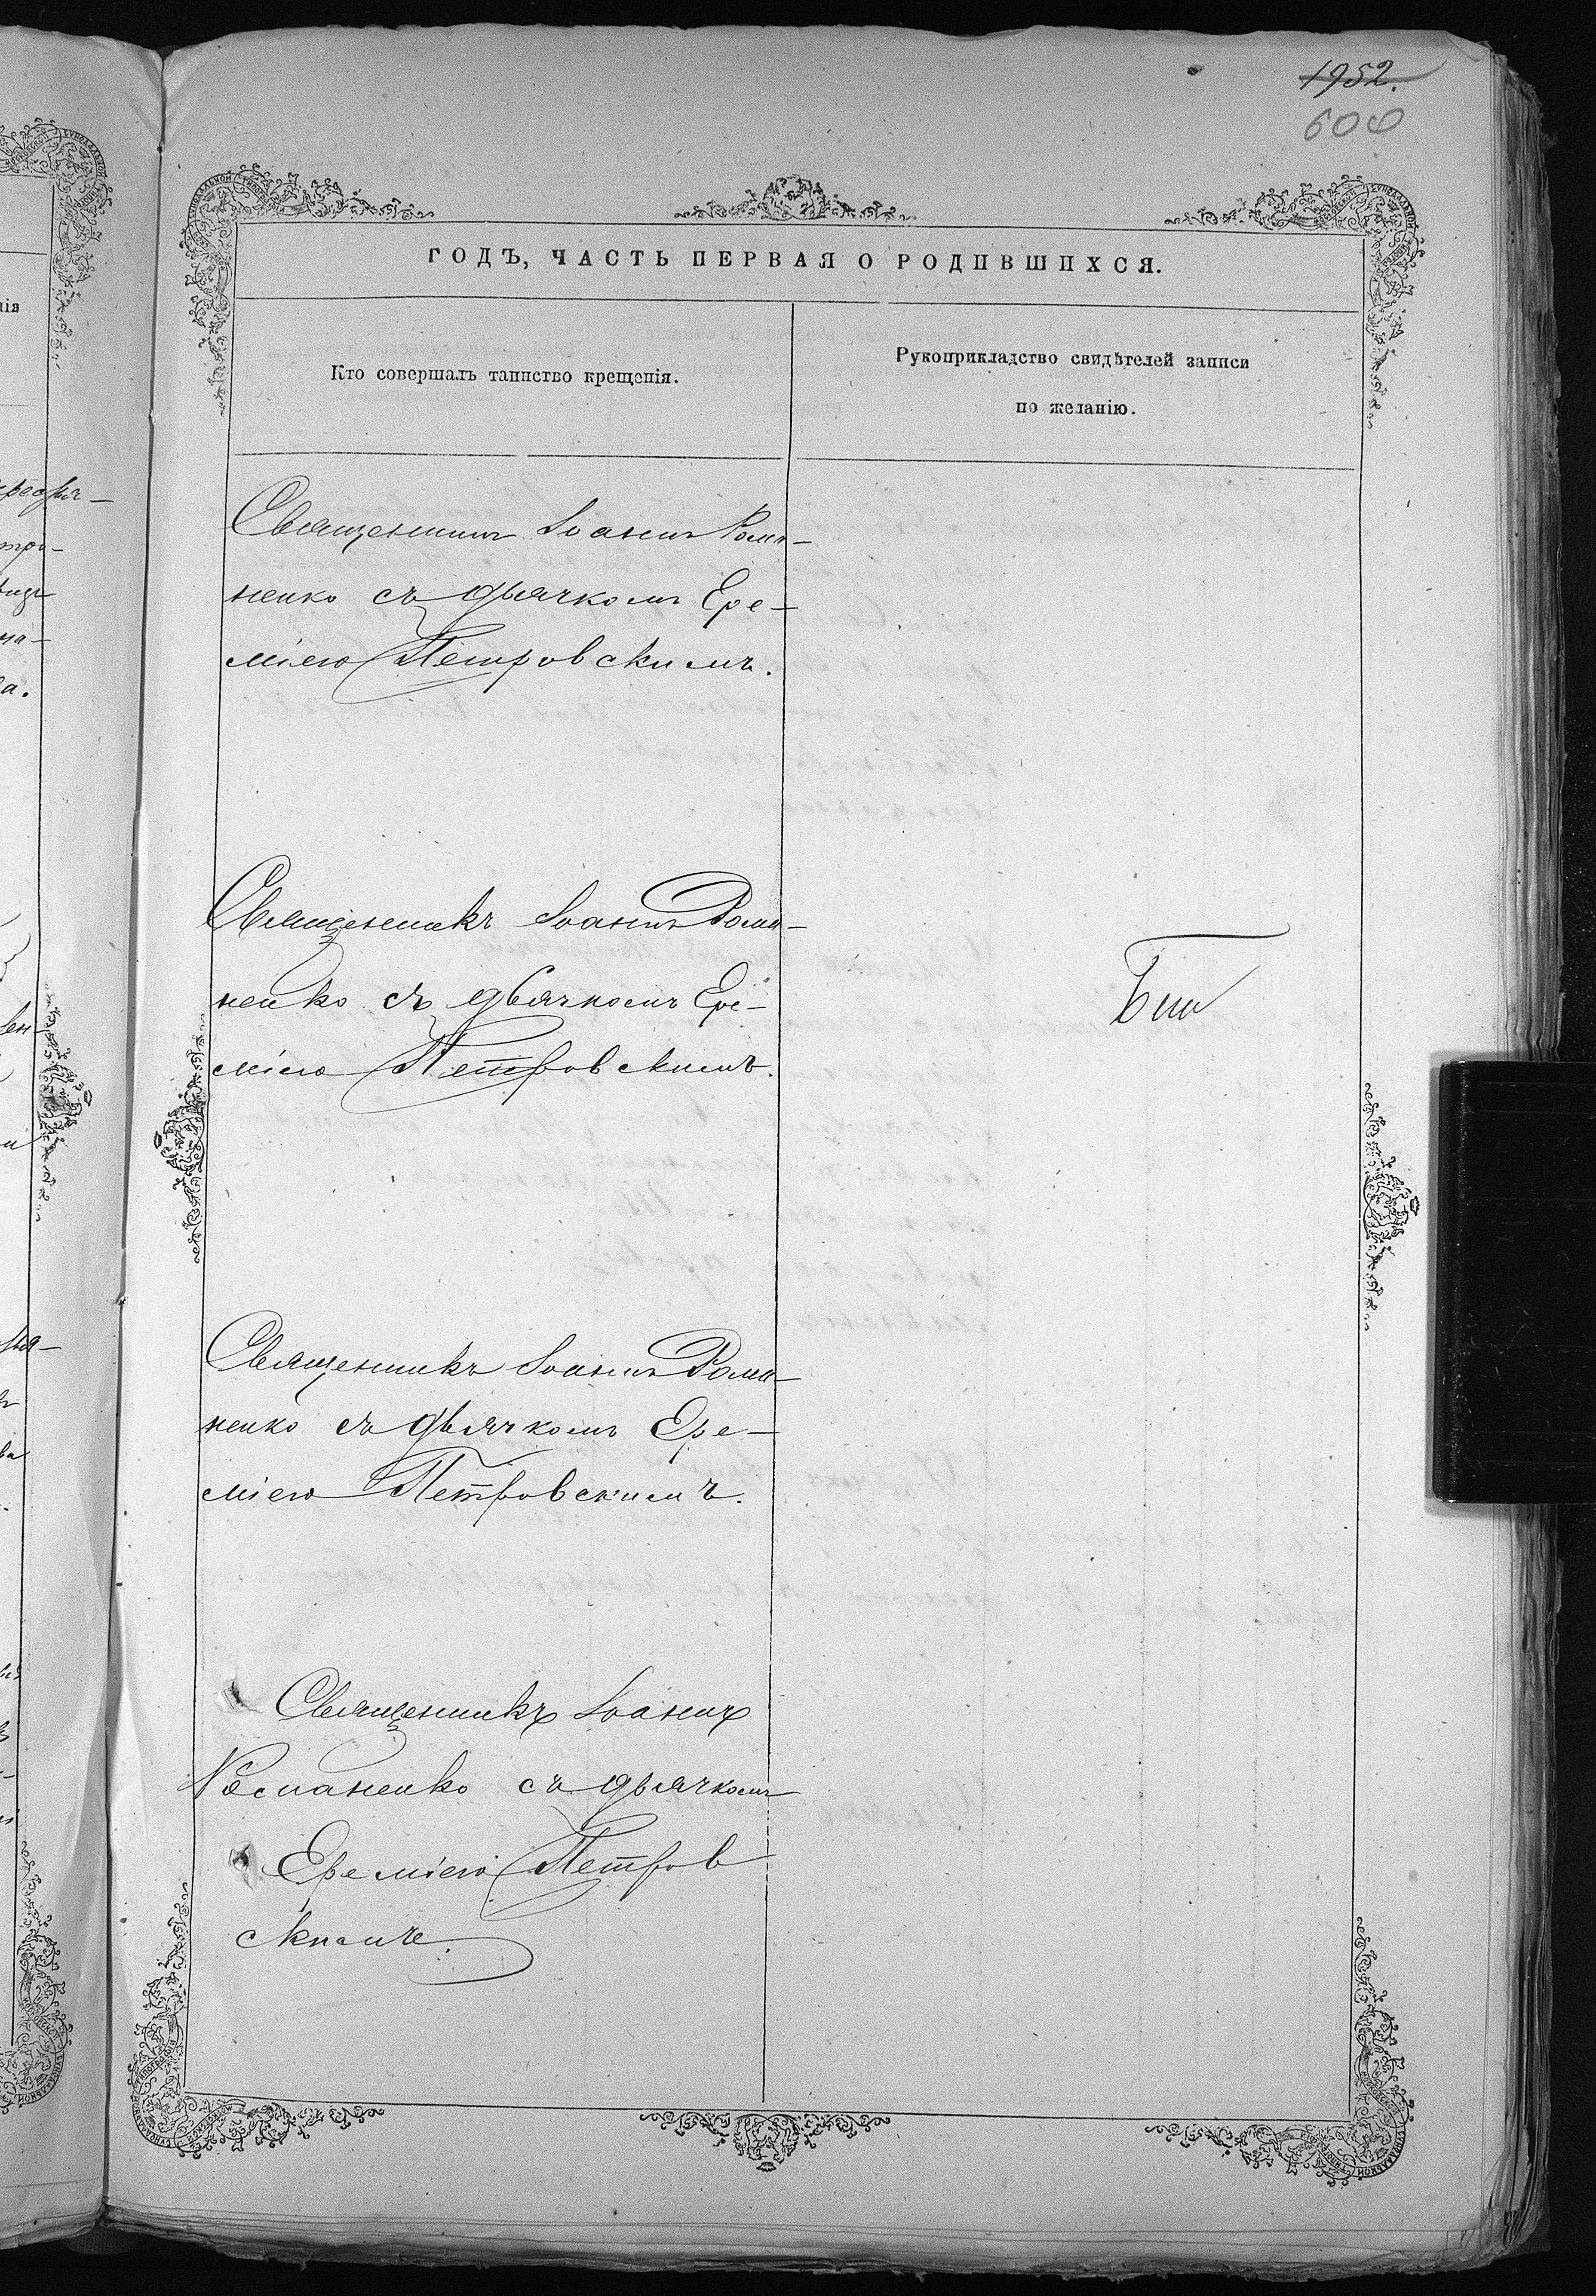 1952.
600
ГОДЪ, ЧАСТЬ ПЕРВАЯ О РОДИВШИХСЯ.
Кто совершалъ таинство крещенія.
Рукоприкладство свидѣтелей записи
по желанію.
Священникъ Іоаннъ Рома-
ненко съ дьячкомъ Ере-
міею Петровскимъ.
Священникъ Іоаннъ Рома-
ненко съ дьячкомъ Ере-
міею Петровскимъ.
Священникъ Іоаннъ Рома-
ненко съ дьячкомъ Ере-
міею Петровскимъ.
Священникъ Іоаннъ
Романенко съ дьячкомъ
Ереміею Петров
скимъ.